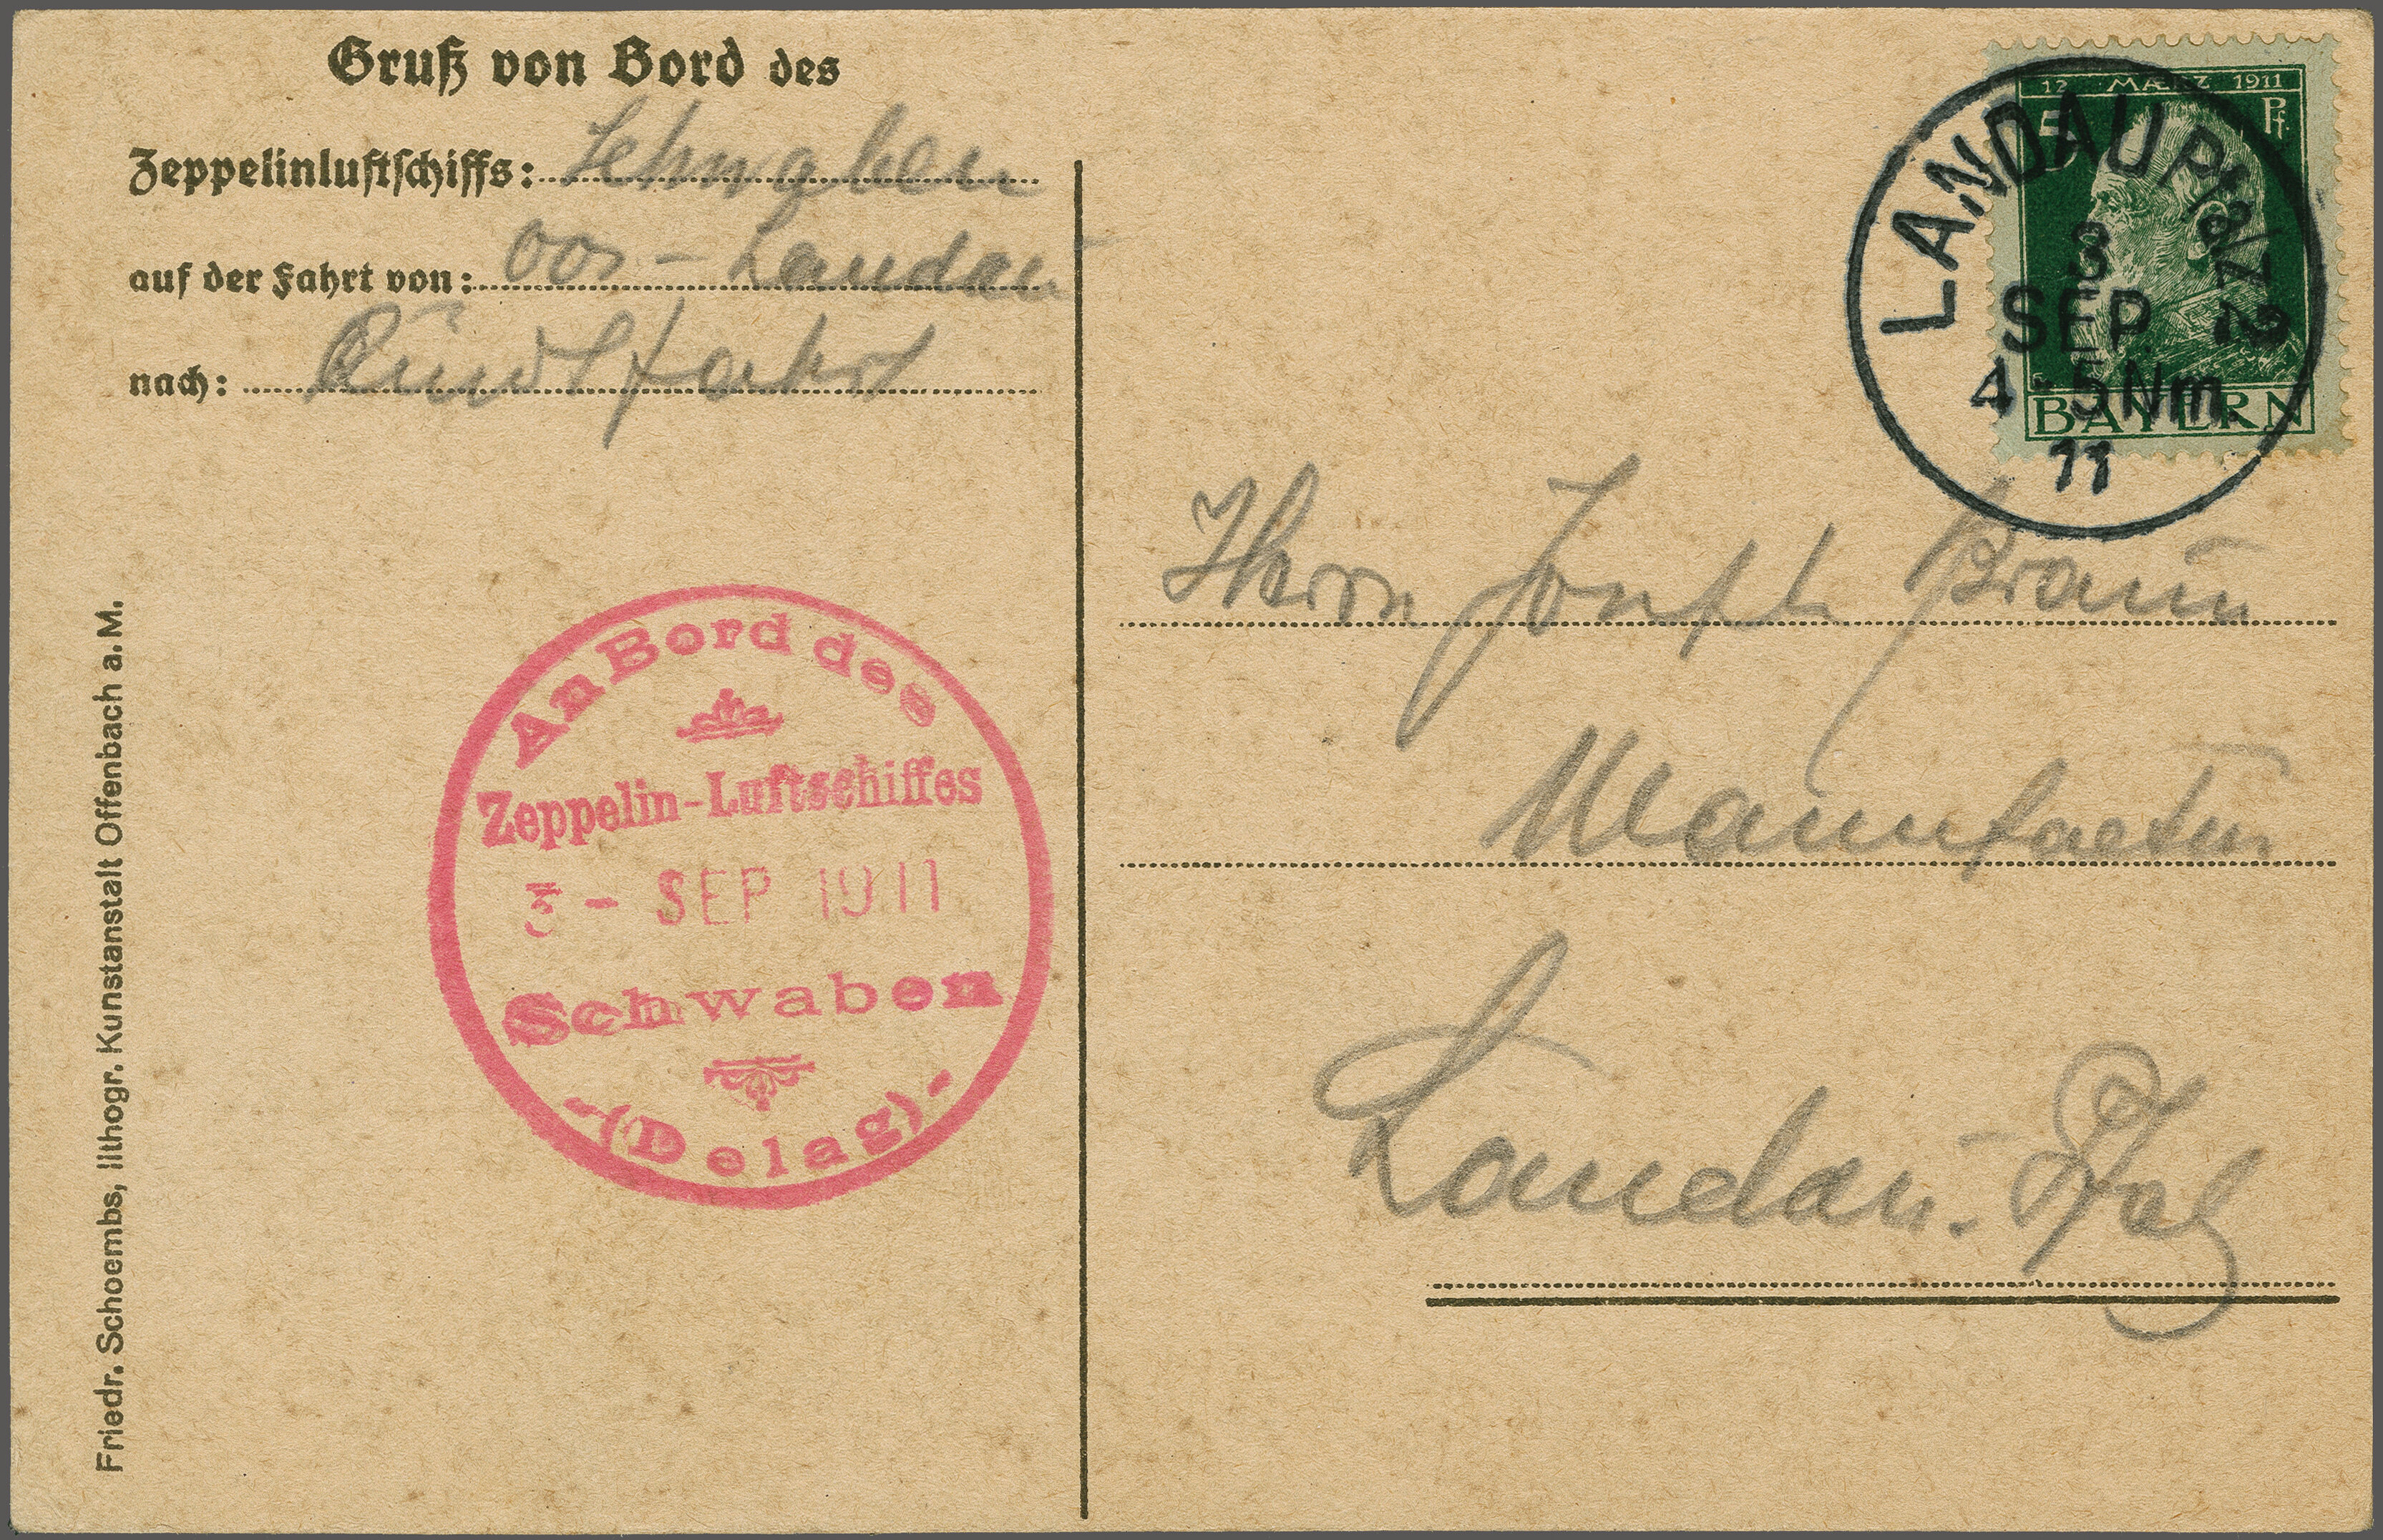 Gruß von Bord des
Zeppelinluftschiffs: Schwaben
auf der Fahrt von: Oos - Landau
nach: Rundfahrt
12 MÆRZ 1911
5 Pf.
BAYERN
LANDAU Pfalz 2
3
SEP.
4-5 Nm.
11
Herrn Joseph Braun
Manufactur
Landau. Pfalz
An Bord des
Zeppelin-Luftschiffes
3 - SEP 1911
Schwaben
-(Delag)-
Friedr. Schoembs, lithogr. Kunstanstalt Offenbach a. M.